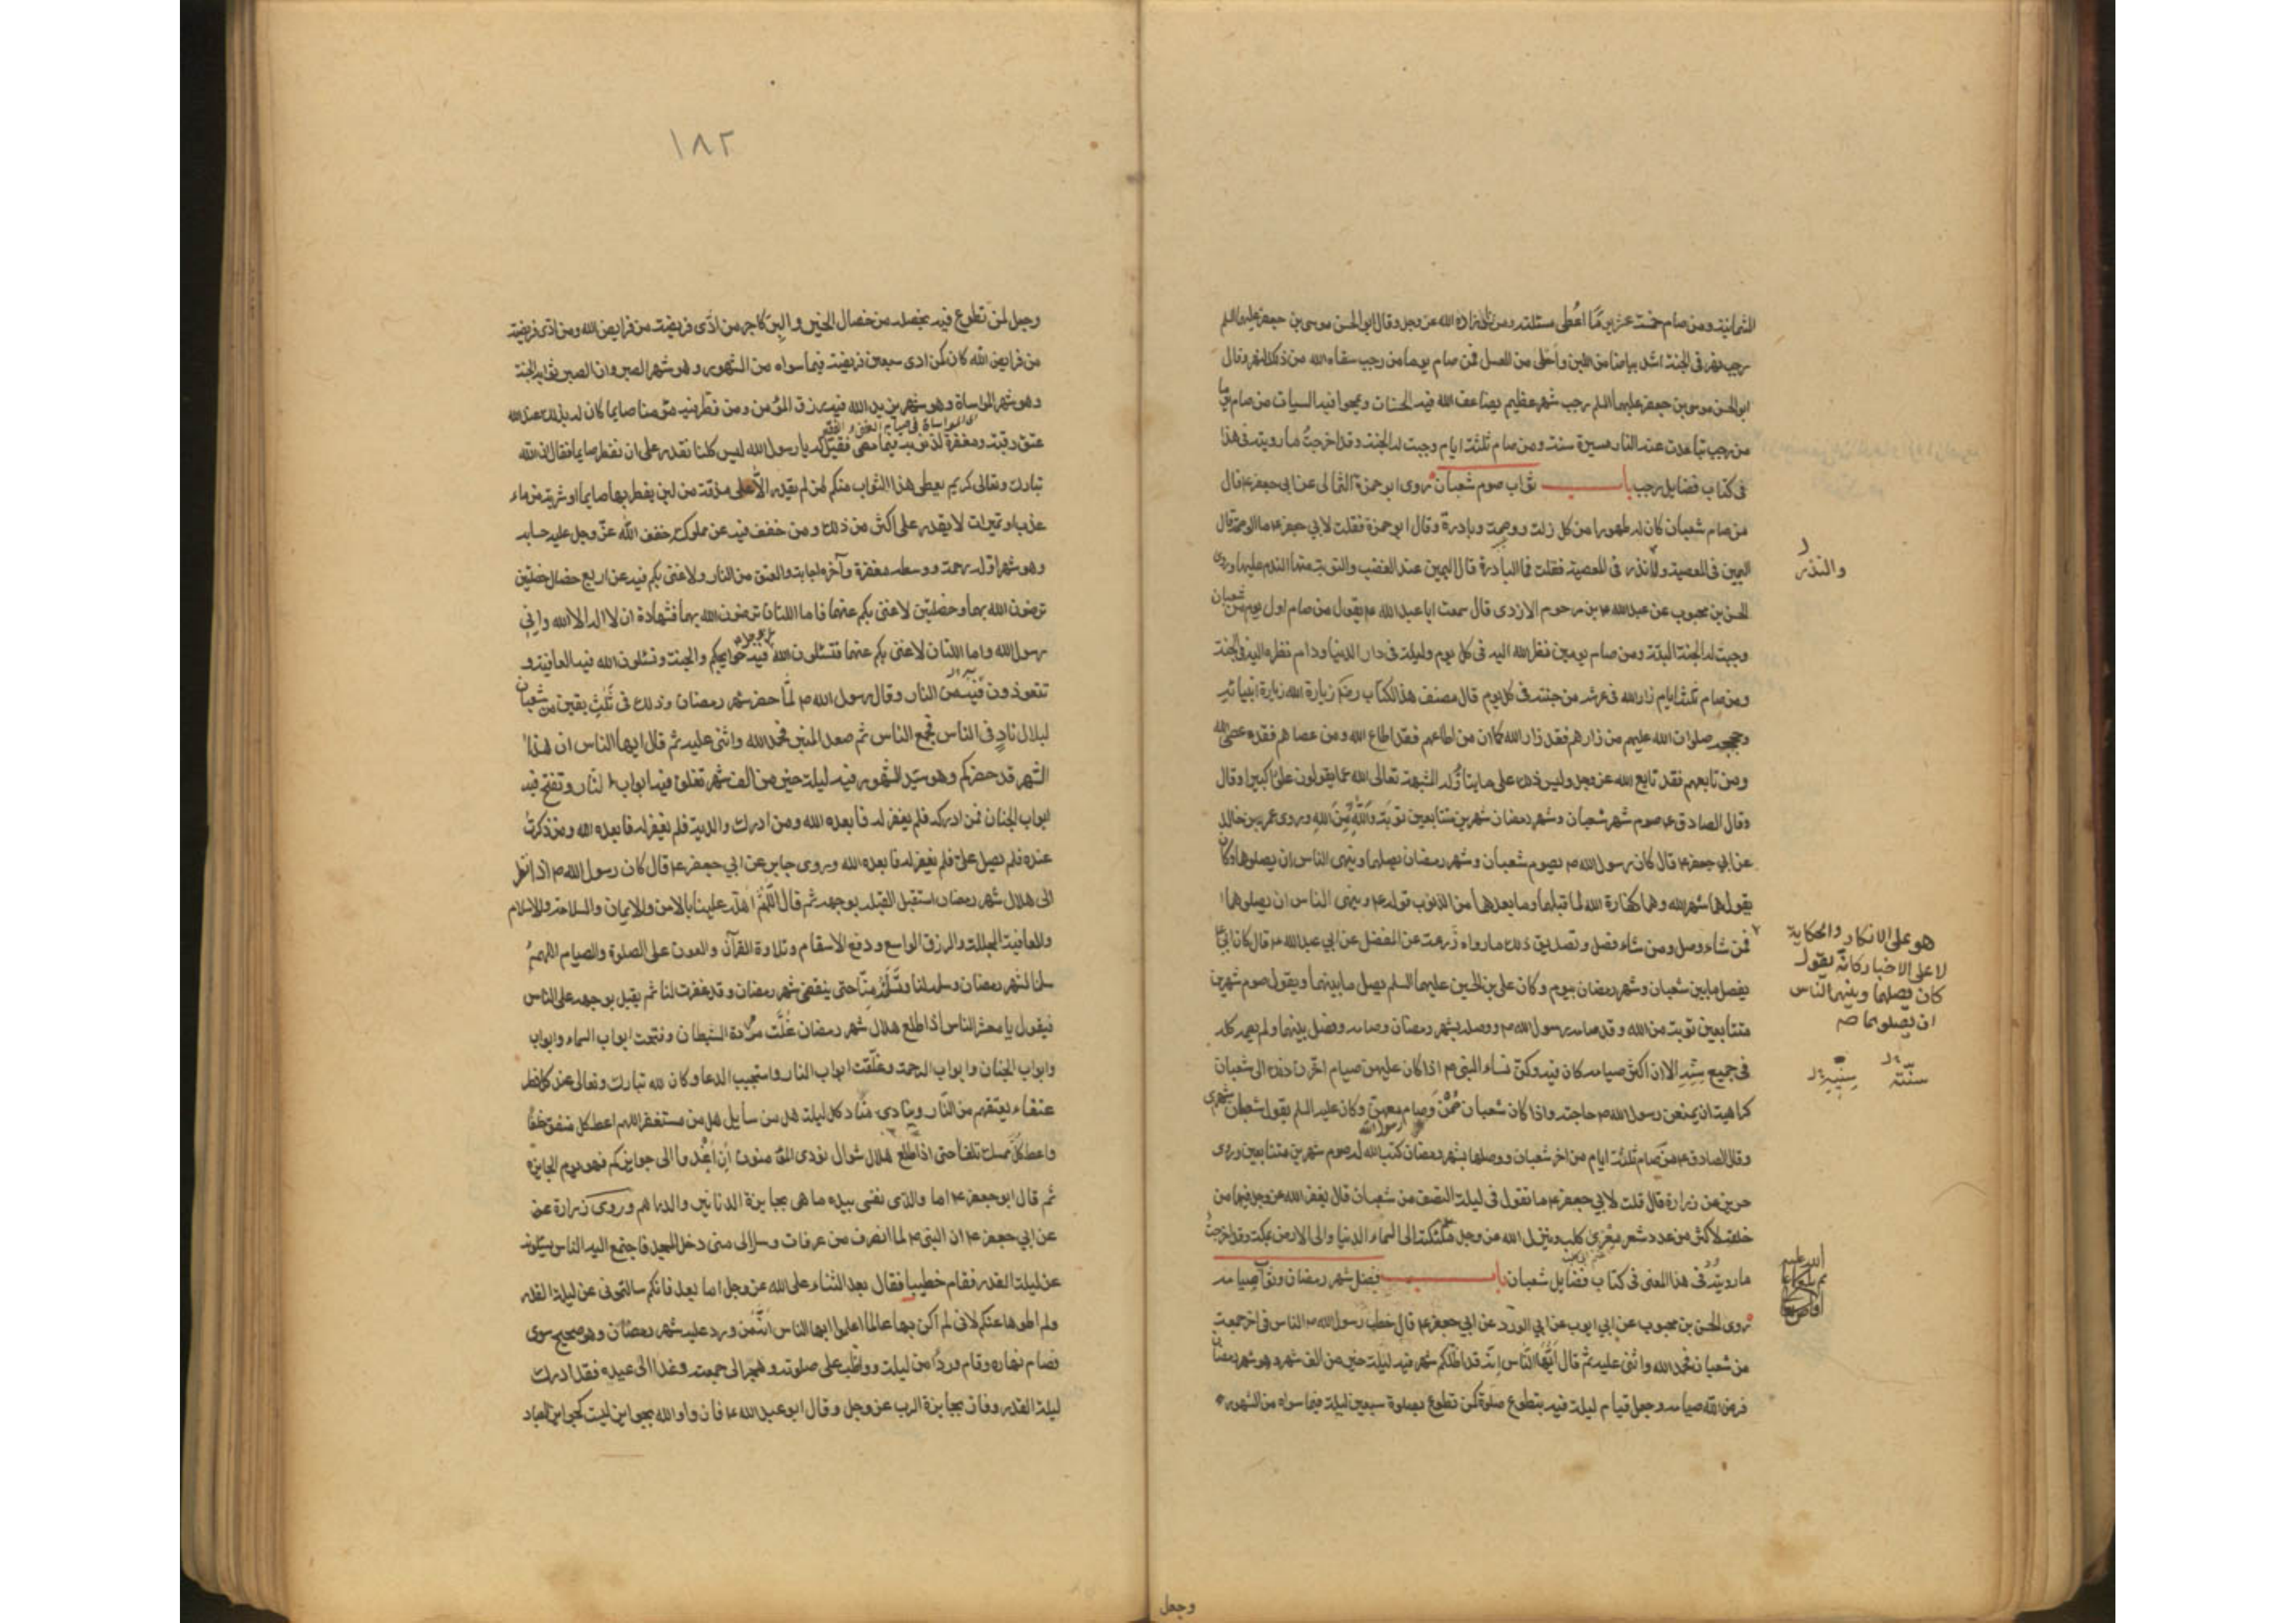 الثمانية ومن صام خمسة عشر يوما اعطى مسئلته ومن زاد زاده الله عز وجل وقال ابو الحسن موسى بن جعفر عليهما السلم
رجب نهر فى الجنة اشد بياضا من اللبن واحلى من العسل فمن صام يوما من رجب سقاه الله من ذلك النهر وقال
ابو الحسن موسى بن جعفر عليهما السلم رجب شهر عظيم يضاعف الله فيه الحسنات ويمحوا فيه السيات من صام يوما
من رجب تباعدت عنه النار مسيرة سنة ومن صام ثلثة ايام وجبت له الجنة وقد اخرجت ما رويته فى هذا
فى كتاب فضايل رجب باب ثواب صوم شعبان روى ابو حمزة الثمالى عن ابى جعفر ع قال
من صام شعبان كان له طهورا من كل زلة ووصمة وبادرة وقال ابو حمزة فقلت لابي جعفر ع ما الوصمة قال
اليمين فى المعصية ولا نذر فى المعصية فقلت فما البادرة قال اليمين عند الغضب والتوبة منها الندم عليها وروى
والنذر
الحسن بن محبوب عن عبدالله بن مرحوم الازدى قال سمعت ابا عبدالله ع يقول من صام اول يوم من شعبان
وجبت له الجنة البتة ومن صام يومين نظر الله اليه فى كل يوم وليلة فى دار الدنيا ودام نظره اليه فى الجنة
ومن صام ثلثة ايام زار الله فى عرشه من جنته فى كل يوم قال مصنف هذا الكتاب زيارة الله زيارة انبيائه
وحججه صلوات الله عليهم من زارهم فقد زار الله كما ان من اطاعهم فقد اطاع الله ومن عصاهم فقد عصى الله
ومن تابعهم فقد تابع الله عز وجل وليس ذلك على ما يتأوله المشبهة تعالى الله عما يقولون علوا كبيرا وقال
وقال الصادق ع صوم شهر شعبان وشهر رمضان شهرين متتابعين توبة والله من الله وروى عمرو بن خالد
عن ابي جعفر ع قال كان رسول الله ص يصوم شعبان وشهر رمضان يصلهما وينهى الناس ان يصلوهما وكان
يقول هما شهر الله وهما كفارة الله لما قبلهما وما بعدهما من الذنوب قوله ع وينهى الناس ان يصلوهما
هو على الانكار والحكاية
لا على الاخبار كانه يقول
كان يصلهما وينهى الناس
ان يصلوهما صه
فمن شاء وصل ومن شاء فصل وتصديق ذلك ما رواه زرعة عن المفضل عن ابي عبدالله ع قال كان ابي ع
يفصل ما بين شعبان وشهر رمضان بيوم وكان على بن الحسين عليهما السلم يصل ما بينهما ويقول صوم شهرين
متتابعين توبة من الله وقد صامه رسول الله ص ووصله بشهر رمضان وصامه وفصل بينهما ولم يصمه كله
فى جميع سنيه الا ان اكثر صيامه كان فيه وكن نساء النبى ص اذا كان عليهن صيام اخرن ذلك الى شعبان
سنته سنيه
كراهية ان يمنعن رسول الله ص حاجته واذا كان شعبان صمن وصام معهن وكان عليه السلم يقول شعبان شهرى
وقال الصادق ع من صام ثلثة ايام من اخر شعبان ووصلها بشهر رمضان كتب الله له صوم شهرين متتابعين وروى
حريز عن زرارة قال قلت لابي جعفر ع ما تقول فى ليلة النصف من شعبان قال يغفر الله عز وجل فيها من
خلقه لاكثر من عدد شعر معزى كلب وينزل الله عز وجل ملئكته الى السماء الدنيا والى الارض بمكة وقد اخرجت
ما رويته فى هذا المعنى فى كتاب فضايل شعبان باب فضل شهر رمضان وثواب صيامه
روى الحسن بن محبوب عن ابي ايوب عن ابي الورد عن ابي جعفر ع قال خطب رسول الله ص الناس فى اخر جمعة
من شعبان فحمد الله واثنى عليه ثم قال ايها الناس انه قد اظلكم شهر فيه ليلة خير من الف شهر وهو شهر رمضان
فرض الله صيامه وجعل قيام ليلة فيه بتطوع صلوة كمن تطوع بصلوة سبعين ليلة فيما سواه من الشهور
وجعل
١٨٢
وجعل لمن تطوع فيه بخصلة من خصال الخير والبر كاجر من ادى فريضة من فرايض الله ومن ادى فريضة
من فرايض الله كان كمن ادى سبعين فريضة فيما سواه من الشهور وهو شهر الصبر وان الصبر ثوابه الجنة
وهو شهر المواساة وهو شهر يزيد الله فيه رزق المؤمن ومن فطر فيه مؤمنا صايما كان له بذلك عند الله
عتق رقبة ومغفرة لذنوبه فيما مضى فقيل له يا رسول الله ليس كلنا نقدر على ان نفطر صايما فقال ان الله
تبارك وتعالى كريم يعطى هذا الثواب منكم لمن لم يقدر الا على مذقة من لبن يفطر بها صايما او شربة من ماء
عذب او تميرات لا يقدر على اكثر من ذلك ومن خفف فيه عن مملوكه خفف الله عز وجل عليه حسابه
وهو شهر اوله رحمة ووسطه مغفرة وآخره اجابة والعتق من النار ولا غنى بكم فيه عن اربع خصال خصلتين
ترضون الله بهما وخصلتين لا غنى بكم عنهما فاما اللتان ترضون الله بهما فشهادة ان لا اله الا الله واني
رسول الله واما اللتان لا غنى بكم عنهما فتسئلون الله فيه حوايجكم والجنة وتسئلون الله فيه العافية و
تتعوذون فيه من النار وقال رسول الله ص لما حضر شهر رمضان وذلك فى ثلث بقين من شعبان
لبلال ناد فى الناس فجمع الناس ثم صعد المنبر فحمد الله واثنى عليه ثم قال ايها الناس ان هذا
الشهر قد حضركم وهو سيد الشهور فيه ليلة خير من الف شهر تغلق فيه ابواب النار وتفتح فيه
ابواب الجنان فمن ادركه فلم يغفر له فابعده الله ومن ادرك والديه فلم يغفر له فابعده الله ومن ذكرت
عنده فلم يصل على فلم يغفر له فابعده الله وروى جابر عن ابي جعفر ع قال كان رسول الله ص اذا نظر
الى هلال شهر رمضان استقبل القبلة بوجهه ثم قال اللهم اهله علينا بالامن والايمان والسلامة والاسلام
والعافية المجللة والرزق الواسع ودفع الاسقام وتلاوة القرآن والعون على الصلوة والصيام اللهم
سلمنا لشهر رمضان وسلمه لنا وتسلمه منا حتى ينقضى شهر رمضان وقد غفرت لنا ثم يقبل بوجهه على الناس
فيقول يا معشر الناس اذا طلع هلال شهر رمضان غلت مردة الشيطان وفتحت ابواب السماء وابواب
وابواب الجنان وابواب الرحمة وغلقت ابواب النار واستجيب الدعا وكان لله تبارك وتعالى عند كل فطر
عتقاء يعتقهم من النار وينادى مناد كل ليلة هل من سايل هل من مستغفر اللهم اعط كل منفق خلفا
واعط كل ممسك تلفا حتى اذا طلع هلال شوال نودى المؤمنون ان اغدوا الى جوايزكم فهو يوم الجايزة
ثم قال ابو جعفر ع اما والذى نفسى بيده ما هى بجايزة الدنانير والدراهم وروى زرارة عن
عن ابي جعفر ع ان النبى ص لما انصرف من عرفات وسار الى منى دخل المسجد فاجتمع اليه الناس يسئلونه
عن ليلة القدر فقام خطيبا فقال بعد الثناء على الله عز وجل اما بعد فانكم سالتمونى عن ليلة القدر
ولم اطوها عنكم لانى لم اكن بها عالما اعلموا ايها الناس انه من ورد عليه شهر رمضان وهو صحيح سوى
فصام نهاره وقام وردا من ليله وواظب على صلوته وهجر الى جمعته وغدا الى عيده فقد ادرك
ليلة القدر وفاز بجايزة الرب عز وجل وقال ابو عبدالله ع فازوا والله بجوايز ليست كجوايز العباد